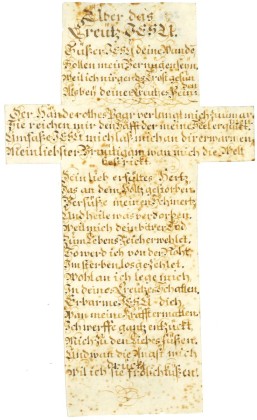 Über das
Creütz JESU.
Süßer JESU deine Wunde
Sollen mein Vergnügen seÿn.
Weil ich nirgends Trost gefunden
Als beÿ deine Creutzes Pein.
Der Hände rothes Paar verlangt mich zu umar
Sie reichen mir den Safft der meine Seel erqvickt.
Umfaße JESU mich laß mich an dir erwarmen
Mein liebster Bräutigam wan mich die Welt
bestrickt.
Dein lieb erfültes Hertz
Das an dem Holtz gestorben
Versüße meinen Schmertz
Und heile was verdorben.
Weil mich dein bittrer Tod
Zum Lebens Zeichen
So werd ich von der Noht
Im sterben loß gezehlet.
Wohl an ich lege mich
In deines Creutzes Schatten.
Erbarme JESU dich
Wan meine Krafft ermatten.
Ich werffe gantz entzückt
Mich zu den Liebes füßen.
Und wan die Angst mich
drückt
Wil ich sie frölich küßen.